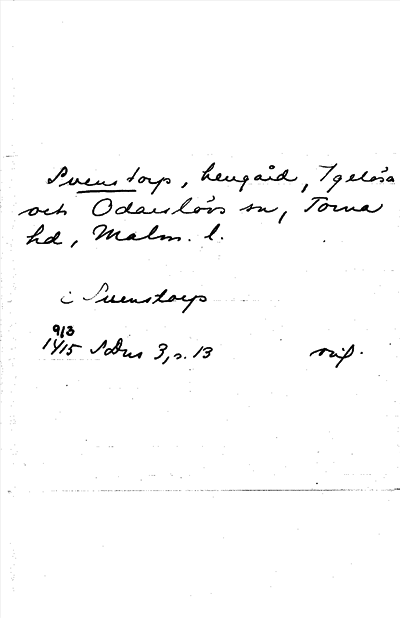 Svenstorp, herrgård, Igelösa
och Odarslövs sn, Torna
hd, Malm. l.
i Svenstorp
9/3
1415 SDns 3, s. 13 orig.